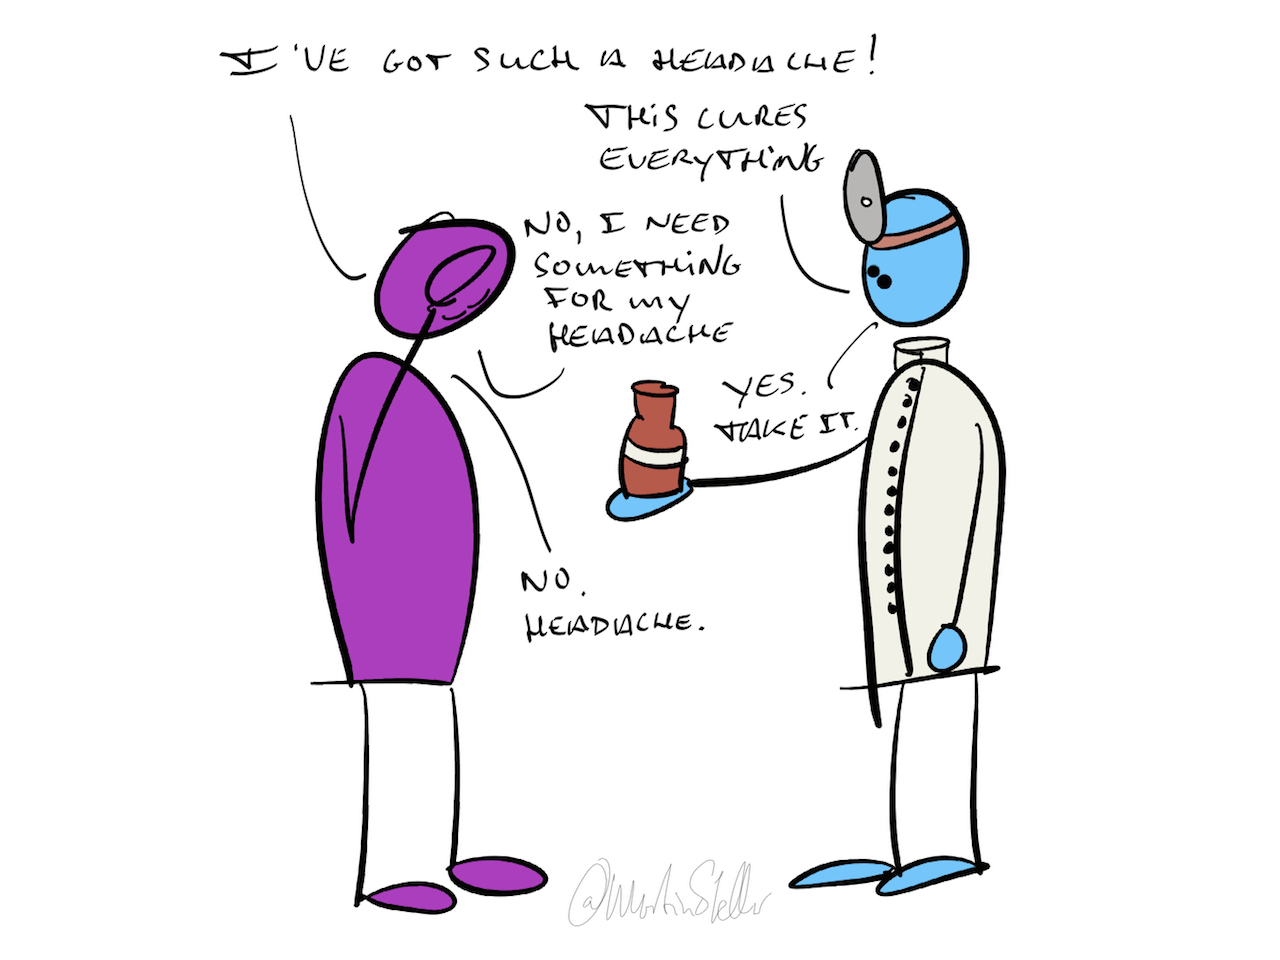 I'VE GOT SUCH A HEADACHE!
THIS CURES
EVERYTHING
NO, I NEED
SOMETHING
FOR MY
HEADACHE
YES.
TAKE IT.
NO.
HEADACHE.
@MartinStellar